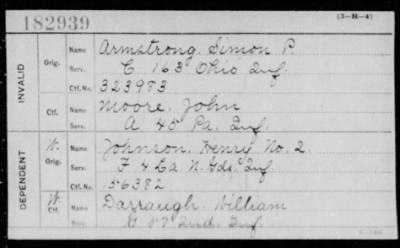 182939
(3-H-4)
INVALID
Orig. Name Armstrong, Simon P.
Serv. C. 163 Ohio Inf.
Ctf. No. 323983
Ctf. Name Moore, John
Serv. A 45 Pa. Inf.
DEPENDENT
W. Orig. Name Johnson, Henry No. 2.
Serv. F 4 La. N. Gds. Inf.
Ctf. No. 156382
W. Ctf. Name Darraugh, William
Serv. G 87 Ind. Inf.